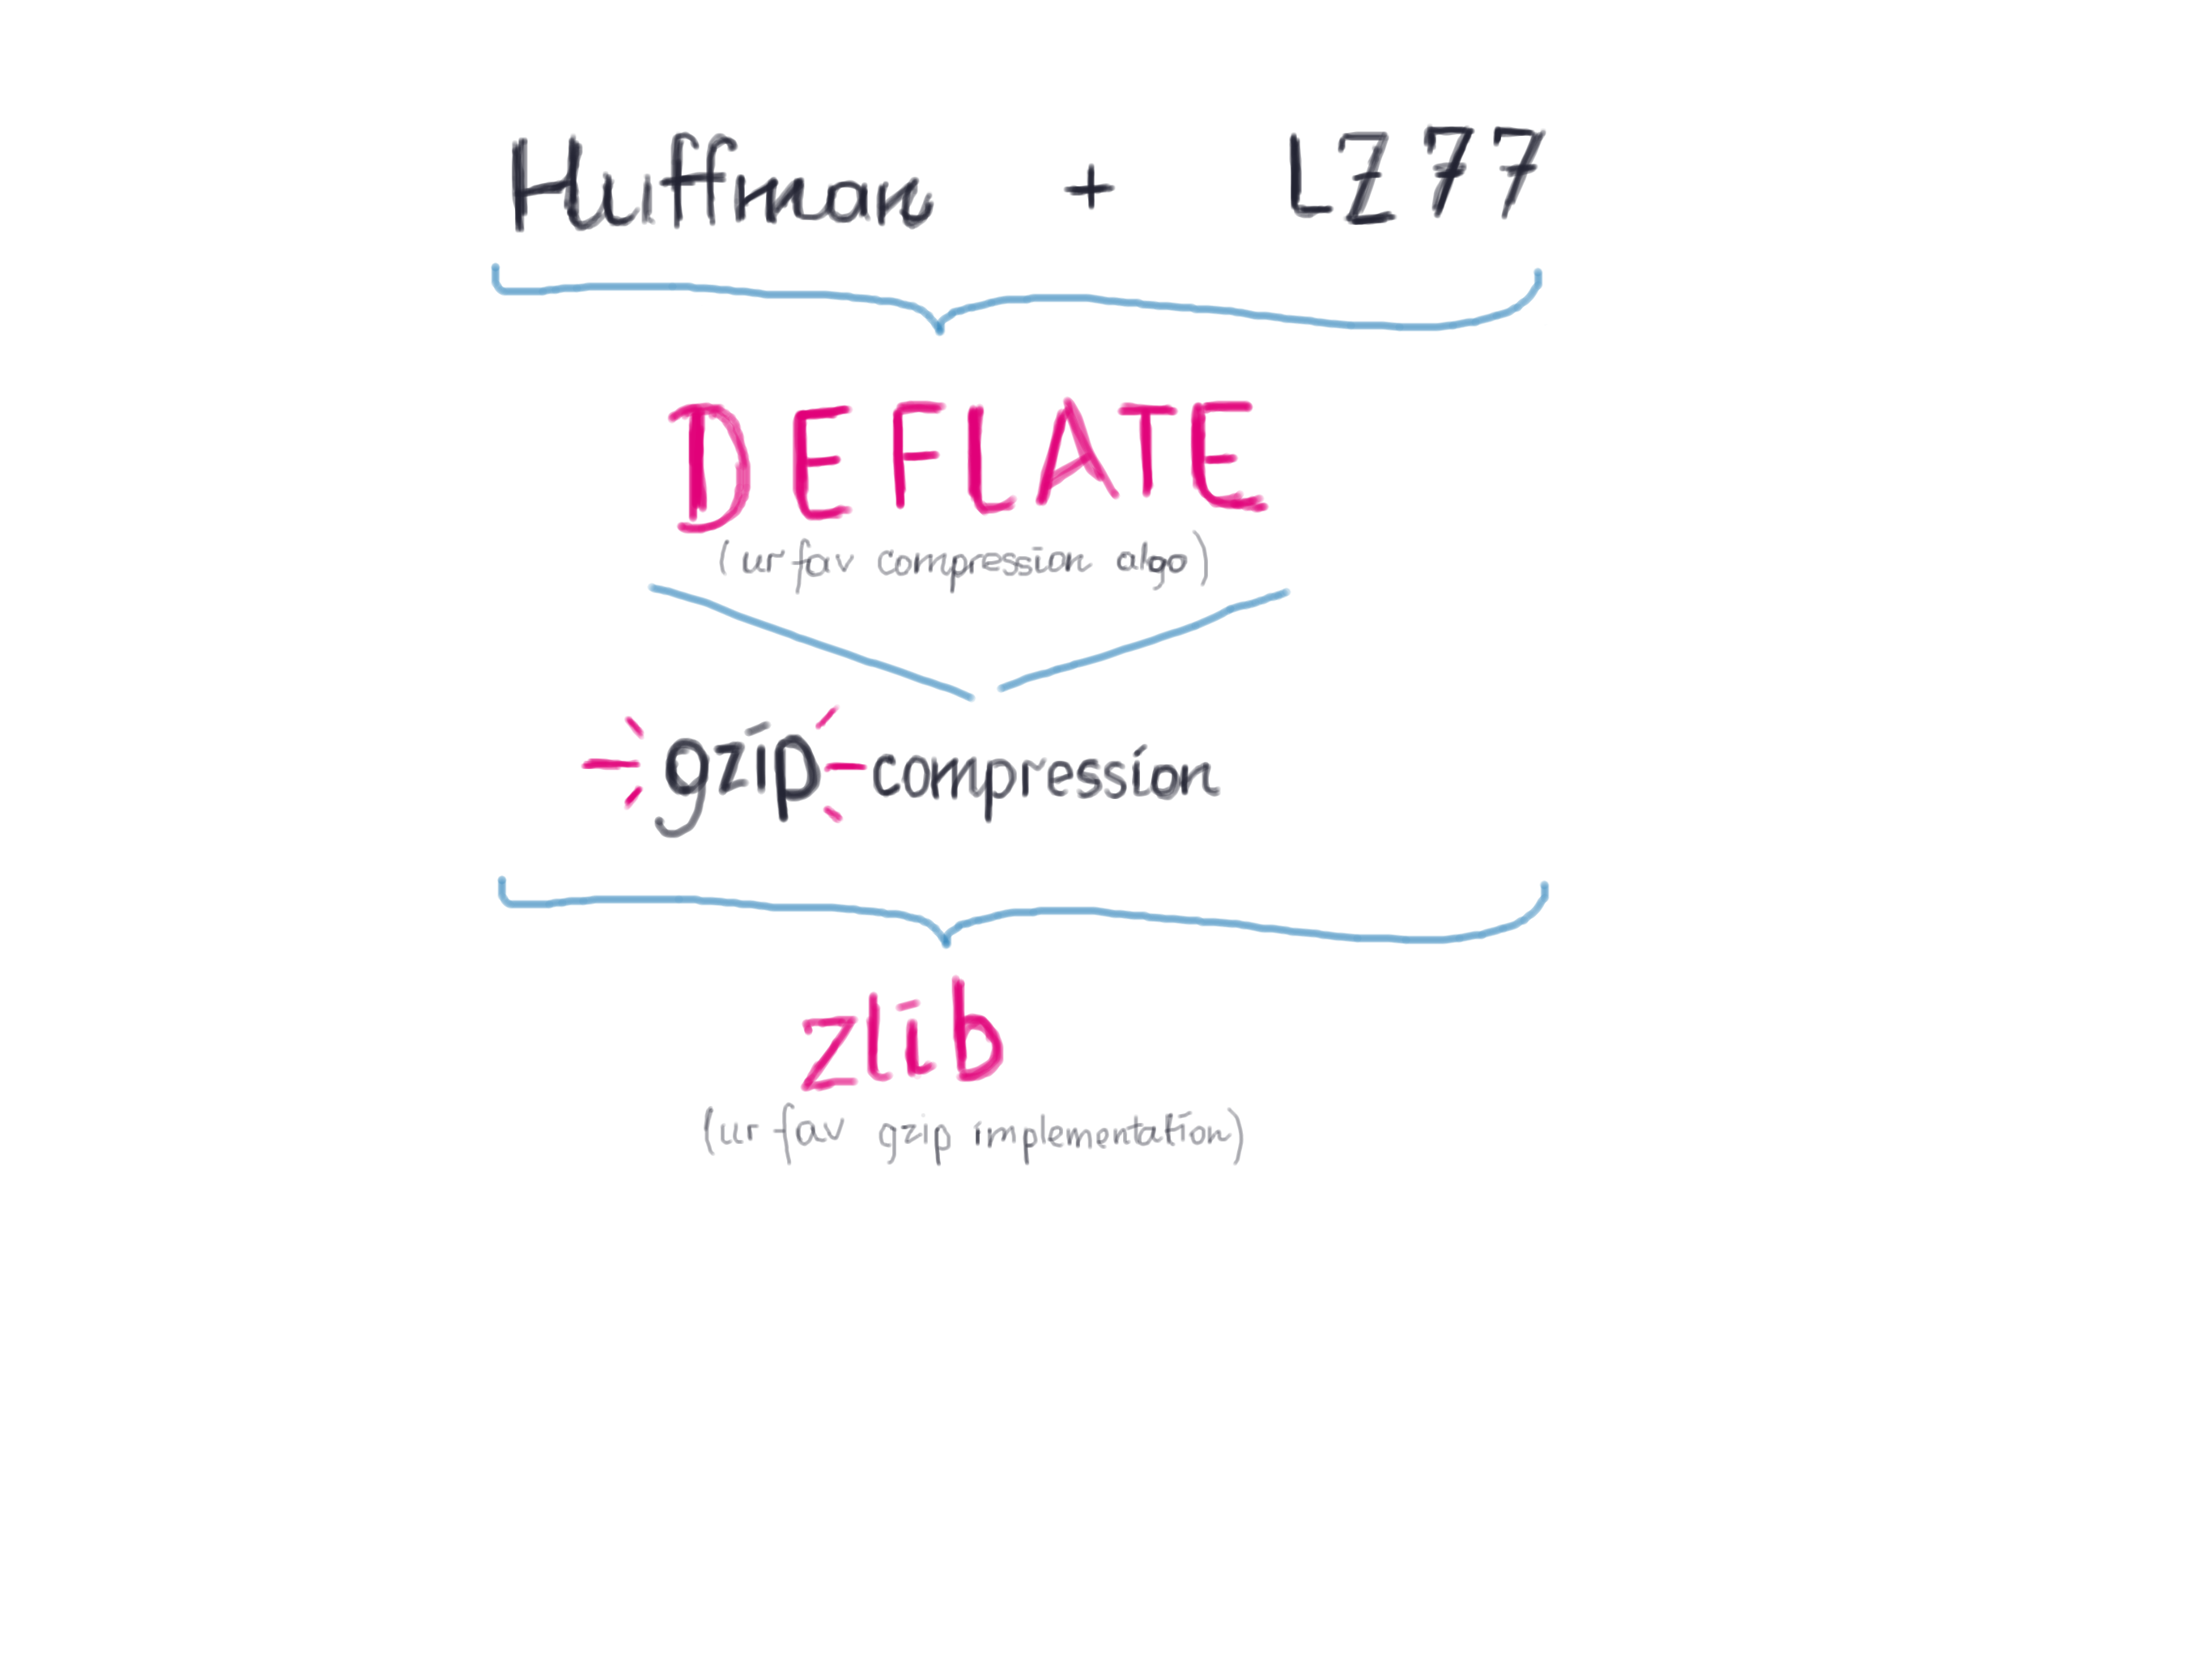 Huffman + LZ77
DEFLATE
(ur fav compression algo)
gzip compression
zlib
(ur fav gzip implementation)